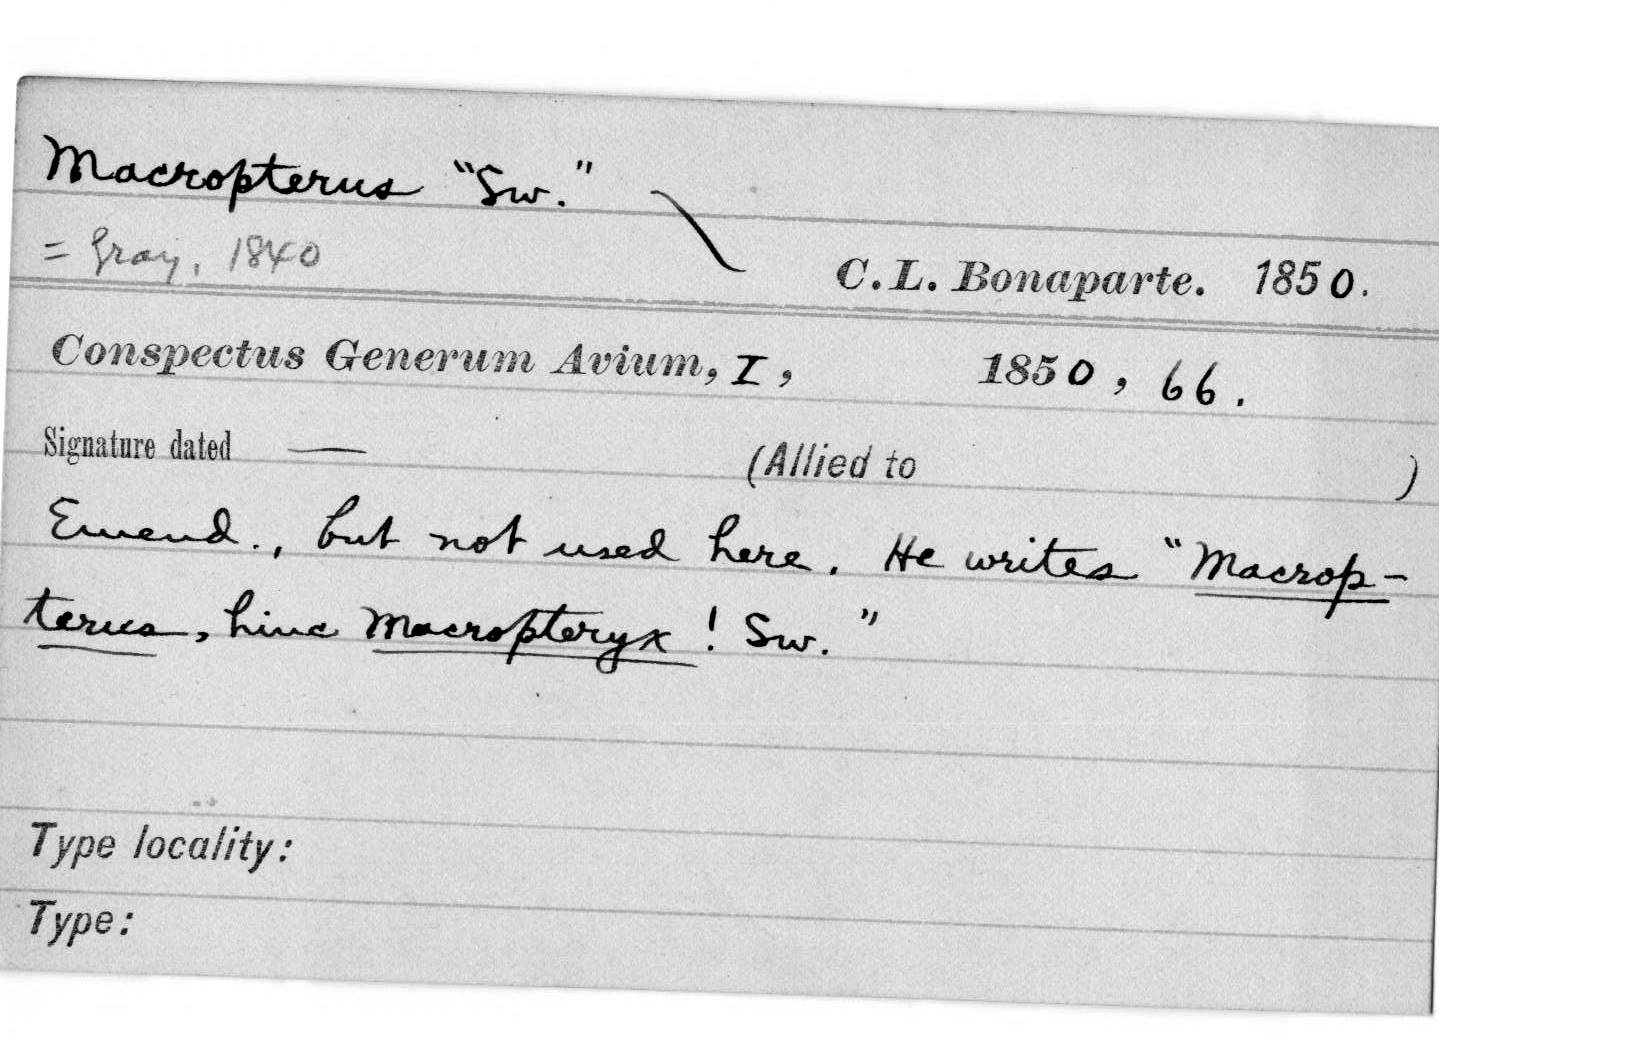 Macropterus "Sw."
= Gray, 1840
C.L. Bonaparte. 1850.
Conspectus Generum Avium, I, 1850, 66.
Signature dated — (Allied to )
Emend., but not used here. He writes "Macrop-
terus, hinc Macropteryx! Sw."
Type locality:
Type: